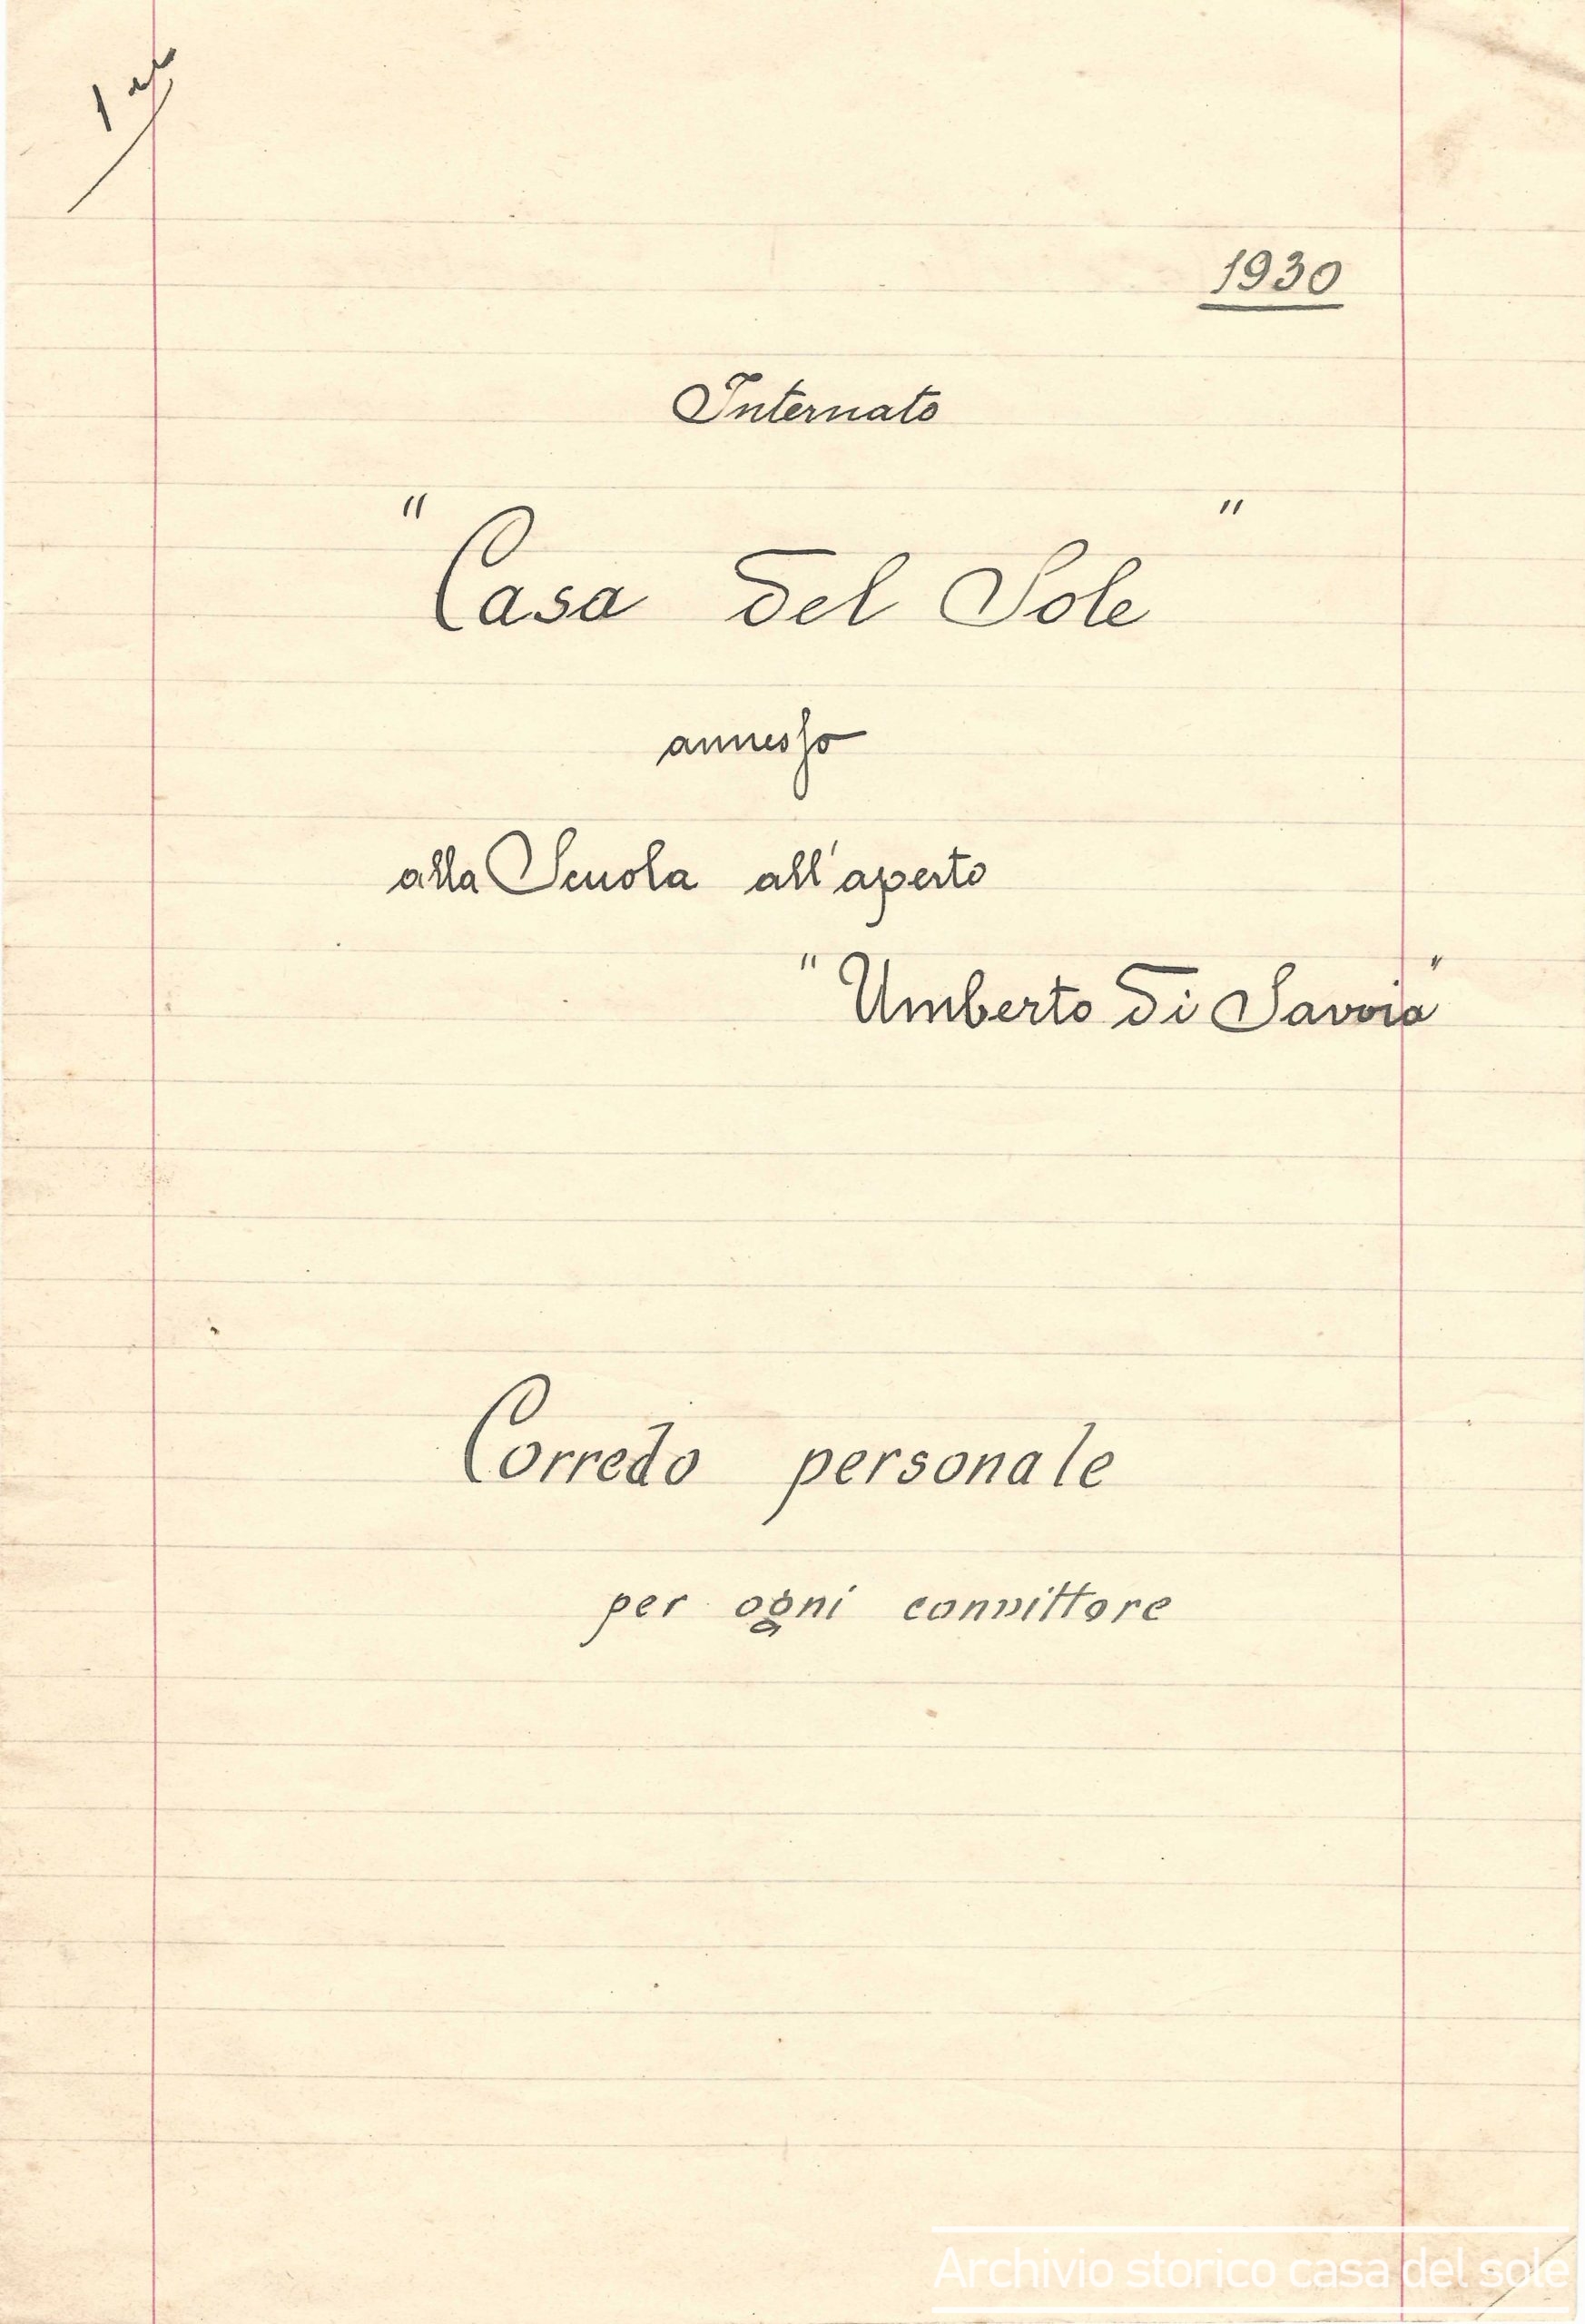 1930
Internato
" Casa del Sole "
annesso
alla Scuola all'aperto
" Umberto di Savoia "
Corredo personale
per ogni convittore
Archivio storico casa del sole